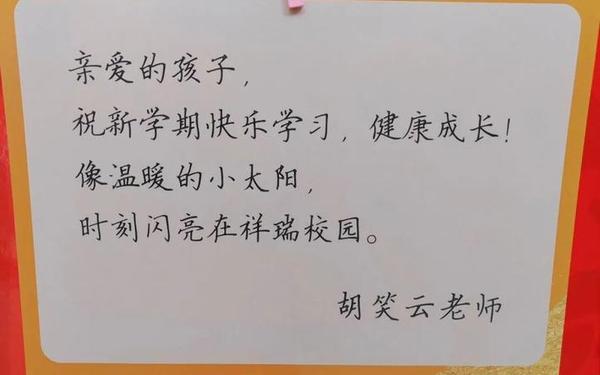 亲爱的孩子，
祝新学期快乐学习，健康成长！
像温暖的小太阳，
时刻闪亮在祥瑞校园。
胡笑云老师